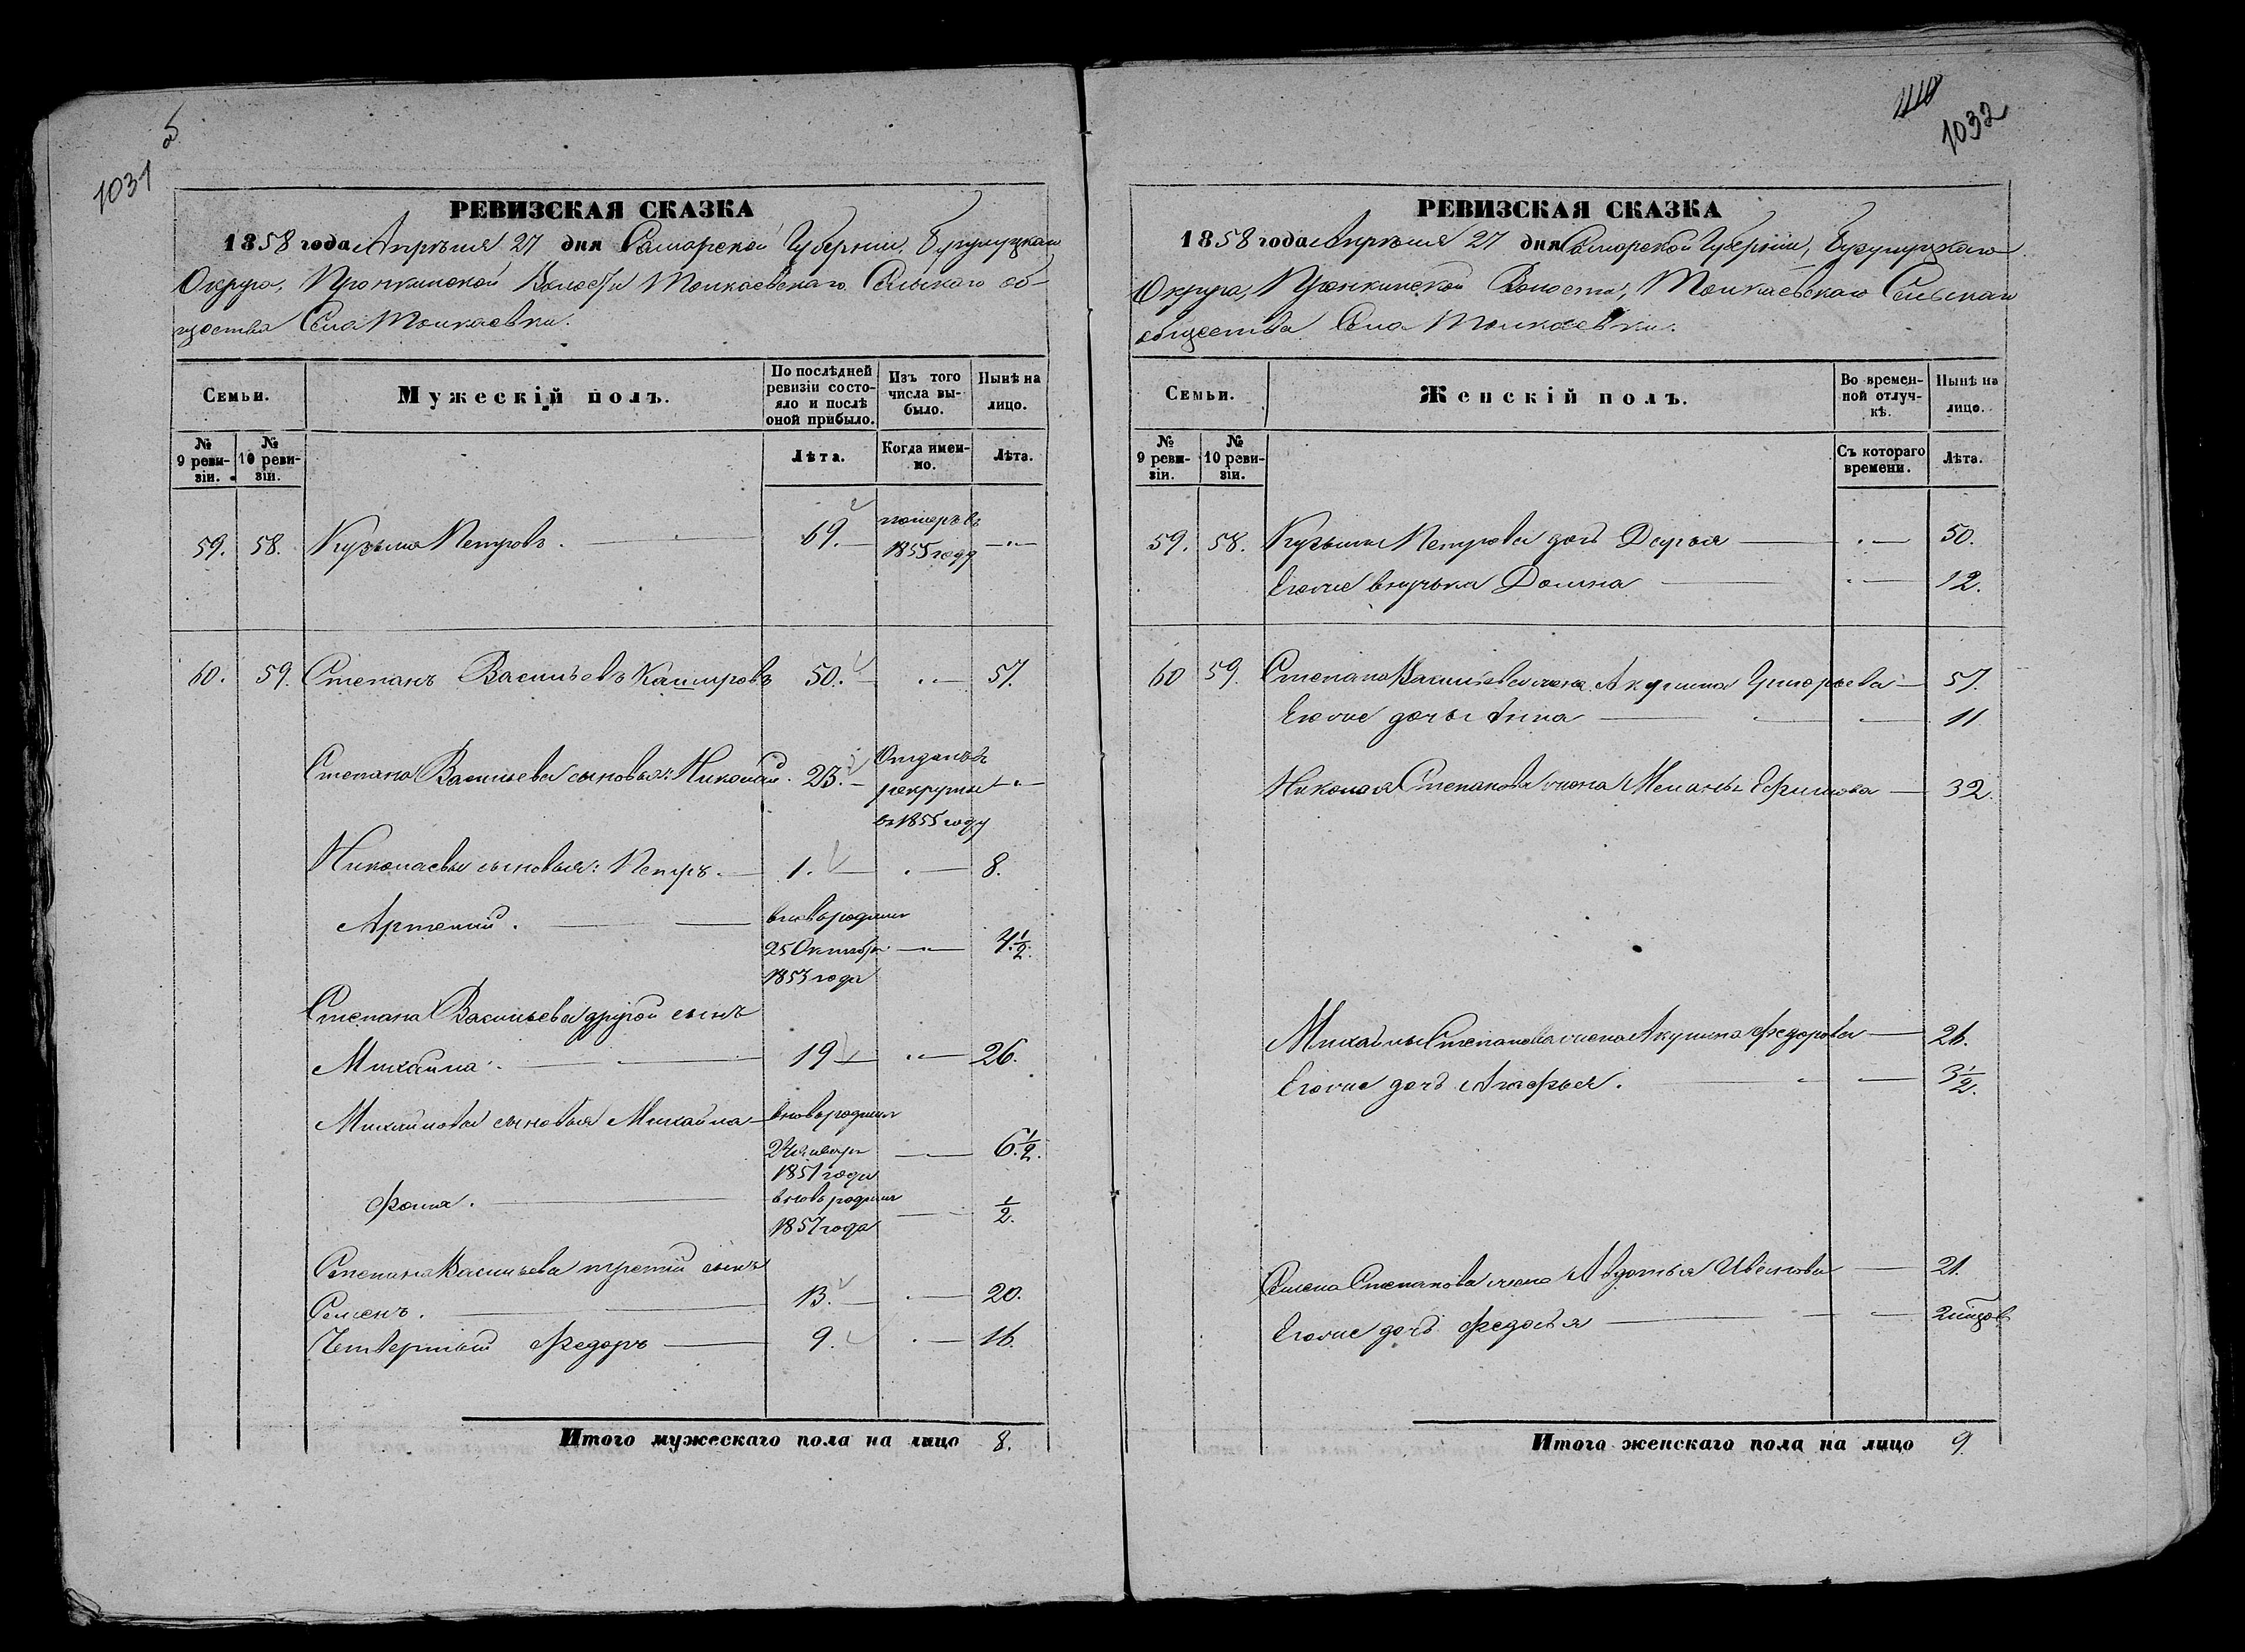 5
1031
РЕВИЗСКАЯ СКАЗКА
1858 года Апрѣля 27 дня Самарской Губерніи, Бузулуцкаго
Округа, Пронкинской Волости Толкаевскаго Сельскаго об-
щества Села Толкаевки.
Семьи.
Мужескій полъ.
По послѣдней ревизіи состояло и послѣ оной прибыло.
Изъ того числа выбыло.
Нынѣ на лицо.
№ 9 ревизіи.
№ 10 ревизіи.
Лѣта.
Когда именно.
Лѣта.
59. 58. Кузьма Петровъ. 69. померъ въ 1855 году
60. 59. Степанъ Васильевъ Кашировъ 50. 57.
Степана Васильева сыновья: Николай. 23. Отданъ въ рекруты въ 1855 году
Николаевы сыновья: Петръ. 1. 8.
Артемій. вновь родился 25 Октября 1853 года 4 1/2.
Степана Васильева другой сынъ
Михайла. 19 26.
Михайловы сыновья Михайла вновь родился 1851 года 6 1/2.
Фома. вновь родился 1857 года 1/2.
Степана Васильева третій сынъ
Семенъ. 13. 20.
Четвертый Федоръ 9. 16.
Итого мужескаго пола на лицо 8.
1032
РЕВИЗСКАЯ СКАЗКА
1858 года Апрѣля 27 дня Самарской Губерніи, Бузулуцкаго
Округа, Пронкинской Волости, Толкаевскаго Сельскаго
общества Села Толкаевки.
Семьи.
Женскій полъ.
Во временной отлучкѣ.
Нынѣ на лицо.
№ 9 ревизіи.
№ 10 ревизіи.
Съ котораго времени.
Лѣта.
59. 58. Кузьмы Петрова дочь Дарья 50.
Его же внучька Домна 12.
60 59. Степана Васильева жена Акулина Григорьева 57.
Его же дочь Анна 11
Николая Степанова жена Меланья Ефимова 32.
Михайлы Степанова жена Акулина Федорова 26.
Его же дочь Агафья. 3 1/2.
Семена Степанова жена Авдотья Иванова 21.
Его же дочь Федосья
Итого женскаго пола на лицо 9.